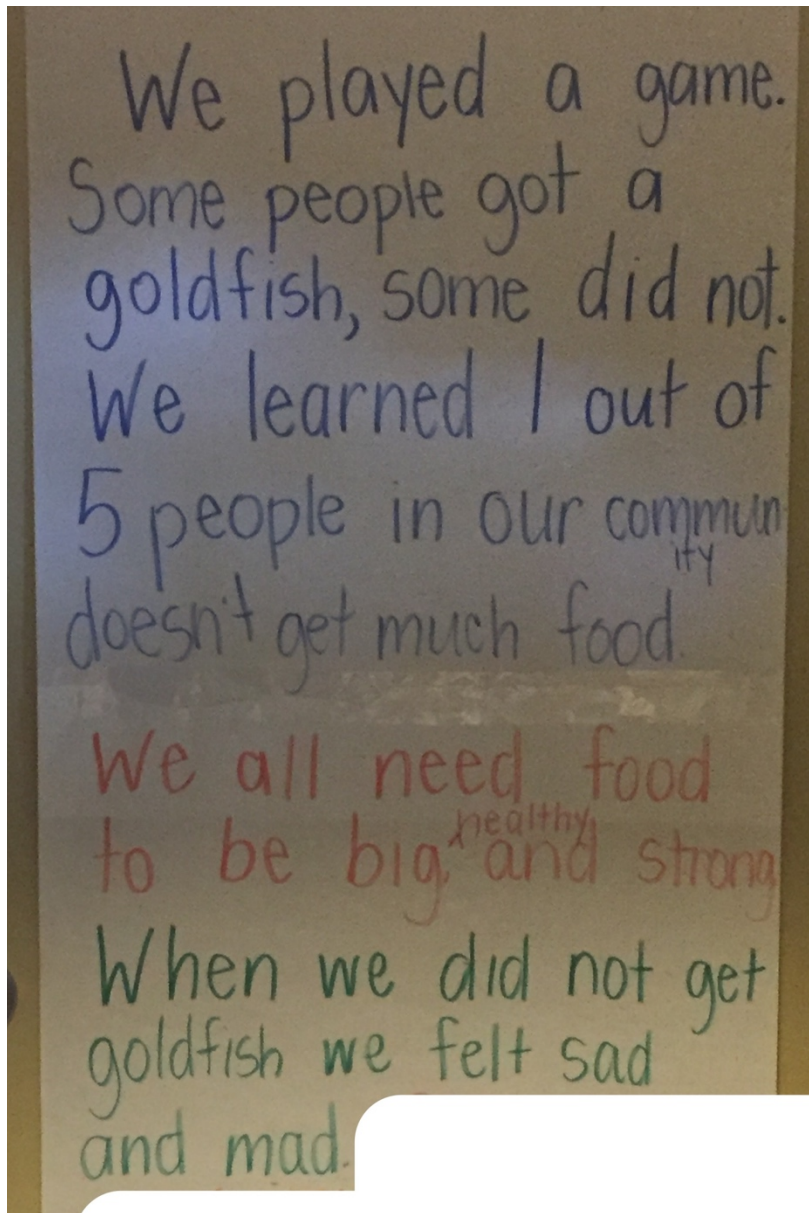 We played a game.
Some people got a
goldfish, some did not.
We learned 1 out of
5 people in our commun
ity
doesn't get much food.
We all need food
healthy
to be big, and strong
When we did not get
goldfish we felt sad
and mad.